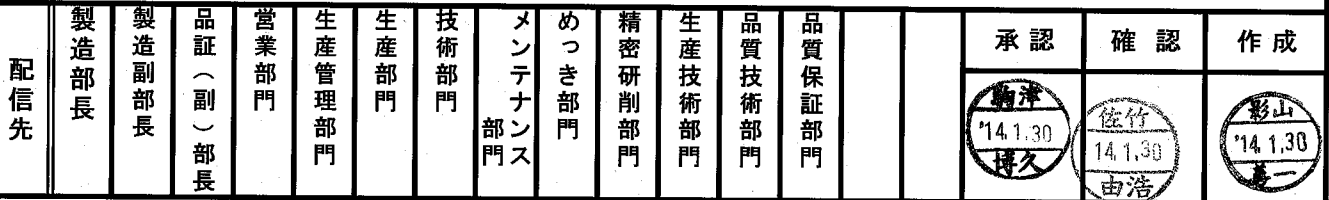 配信先
製造部長
製造副部長
品証（副）部長
営業部門
生産管理部門
生産部門
技術部門
メンテナンス
部門
めっき部門
精密研削部門
生産技術部門
品質技術部門
品質保証部門
承認
確認
作成
駒津
'14.1.30
博久
佐竹
14.1.30
由浩
影山
'14.1.30